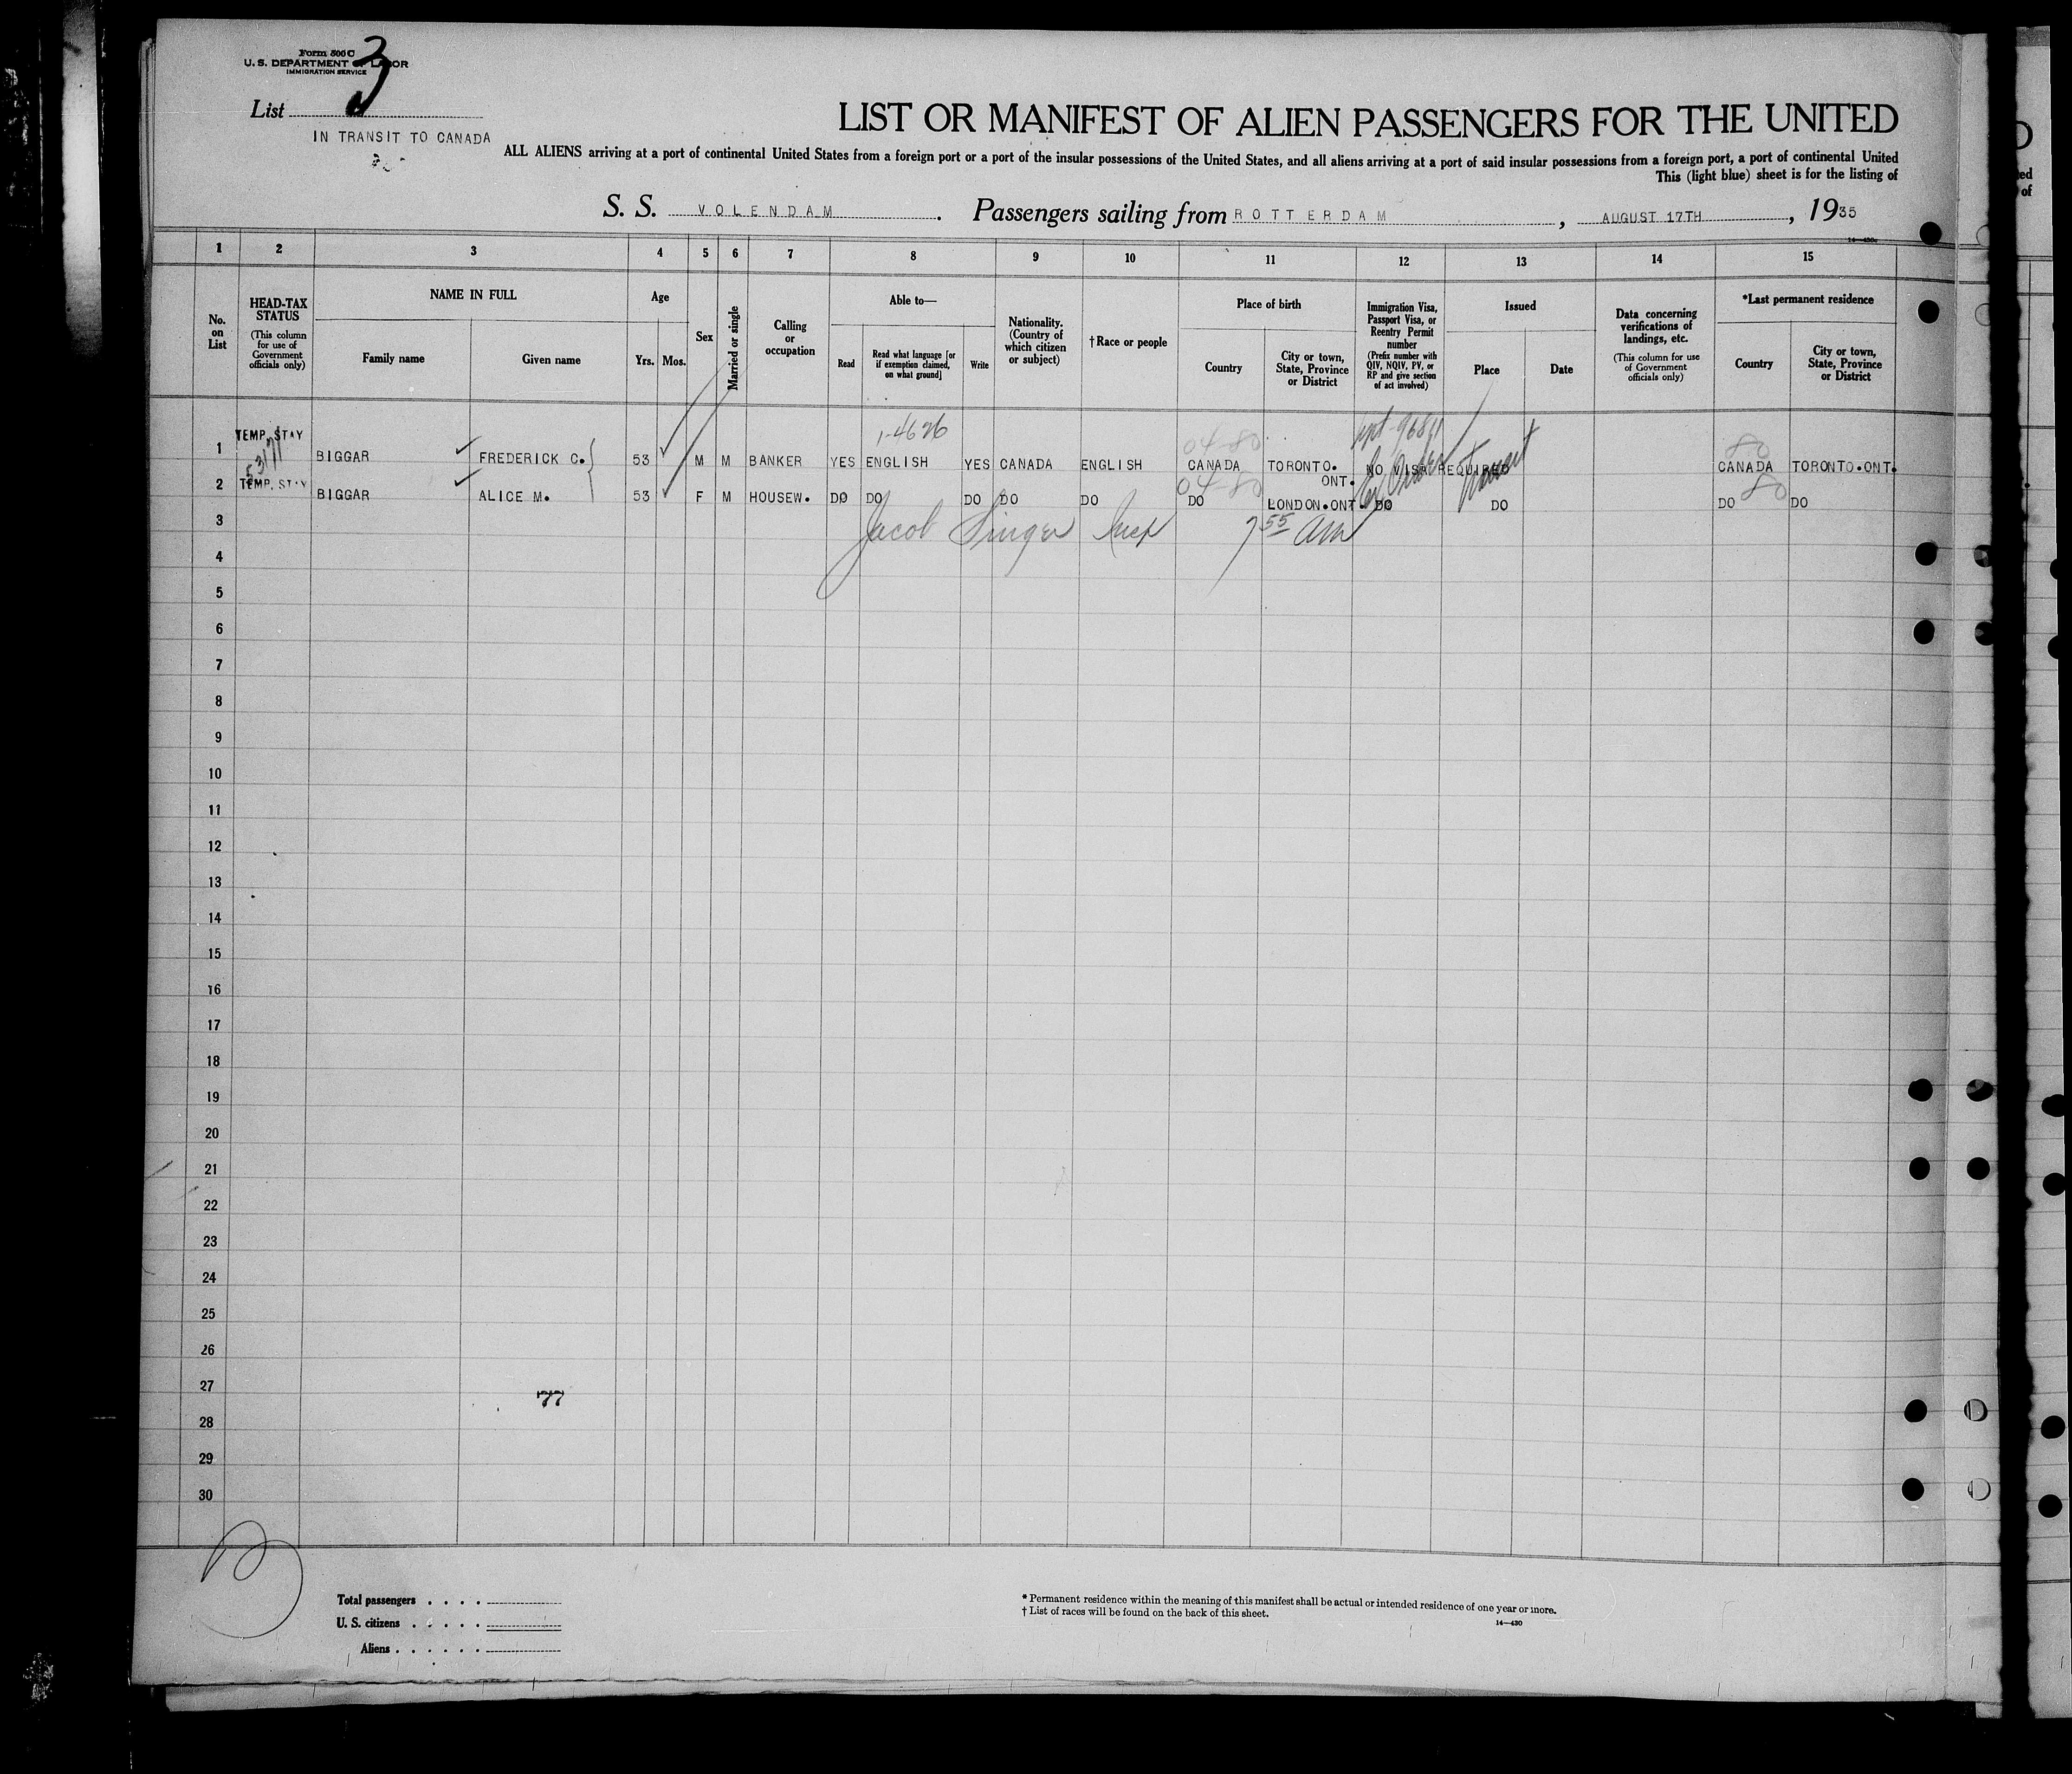 Form 500 C
U. S. DEPARTMENT OF LABOR
IMMIGRATION SERVICE
3
List
IN TRANSIT TO CANADA
LIST OR MANIFEST OF ALIEN PASSENGERS FOR THE UNITED
ALL ALIENS arriving at a port of continental United States from a foreign port or a port of the insular possessions of the United States, and all aliens arriving at a port of said insular possessions from a foreign port, a port of continental United
This (light blue) sheet is for the listing of
S. S. VOLENDAM. Passengers sailing from ROTTERDAM, AUGUST 17TH, 1935
1 2 3 4 5 6 7 8 9 10 11 12 13 14 15
No. on List
HEAD-TAX STATUS (This column for use of Government officials only)
NAME IN FULL
Family name Given name
Age
Yrs. Mos.
Sex
Married or single
Calling or occupation
Able to—
Read
Read what language [or if exemption claimed, on what ground]
Write
Nationality. (Country of which citizen or subject)
†Race or people
Place of birth
Country
City or town, State, Province or District
Immigration Visa, Passport Visa, or Reentry Permit number (Prefix number with QIV, NQIV, PV, or RP and give section of act involved)
Issued
Place Date
Data concerning verifications of landings, etc. (This column for use of Government officials only)
*Last permanent residence
Country
City or town, State, Province or District
1-4626
04-80
80
1 TEMP. STAY BIGGAR FREDERICK C. 53 M M BANKER YES ENGLISH YES CANADA ENGLISH CANADA TORONTO. ONT. NO VISA REQUIRED Transit CANADA TORONTO.ONT.
04-80
80
2 TEMP. STAY BIGGAR ALICE M. 53 F M HOUSEW. DO DO DO DO DO DO LONDON.ONT. DO DO DO DO
3 Jacob Singer Insp 7 55 AM
4
5
6
7
8
9
10
11
12
13
14
15
16
17
18
19
20
21
22
23
24
25
26
27
77
28
29
30
Total passengers . . . .
U. S. citizens . . . . .
Aliens . . . . . .
* Permanent residence within the meaning of this manifest shall be actual or intended residence of one year or more.
† List of races will be found on the back of this sheet.
14—430